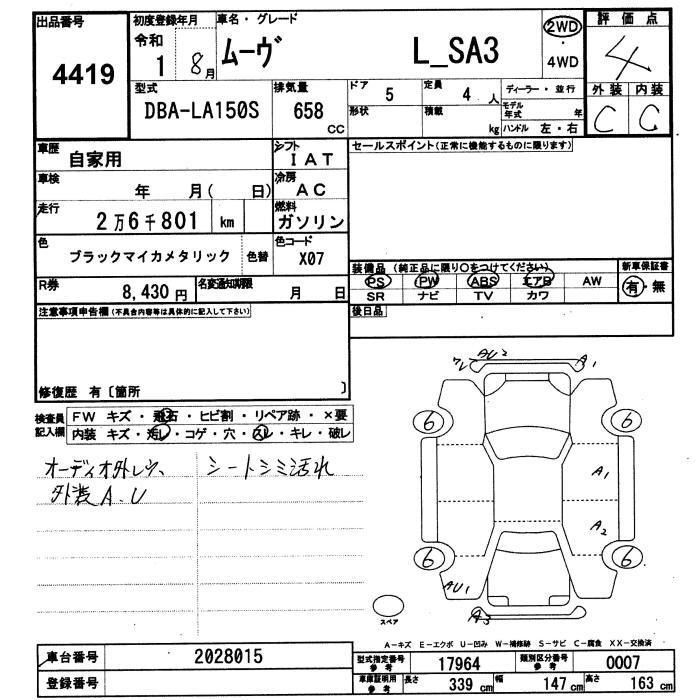 出品番号 4419
初度登録年月 令和 1 8月
車名・グレード ムーヴ L_SA3
2WD・4WD
評価点 4
外装 C 内装 C
型式 DBA-LA150S
排気量 658 CC
ドア 5 定員 4人
形状 積載 kg
ディーラー・並行
モデル年式 年
ハンドル 左・右
車歴 自家用
シフト IAT
セールスポイント(正常に機能するものに限ります)
車検 年 月( 日)
冷房 AC
走行 2万6千801 km
燃料 ガソリン
色 ブラックマイカメタリック 色替
色コード X07
装備品 (純正品に限り○をつけてください)
新車保証書 有・無
PS PW ABS エアB AW
SR ナビ TV カワ
R券 8,430円
名変通知期限 月 日
後日品
注意事項申告欄(不具合内容等は具体的に記入して下さい)
修復歴 有〔箇所 〕
検査員記入欄
FW キズ・飛石・ヒビ割・リペア跡・×要
内装 キズ・汚レ・コゲ・穴・スレ・キレ・破レ
オーディオ外レウ、 シートシミ汚れ
外装A.U
AU2 A1
6 6
A1
A2
6 6
AU1
A3
スペア
A−キズ E−エクボ U−凹み W−補修跡 S−サビ C−腐食 XX−交換済
車台番号 2028015
登録番号
型式指定番号 参考 17964
類別区分番号 参考 0007
車庫証明用 参考 長さ 339 cm 幅 147 cm 高さ 163 cm